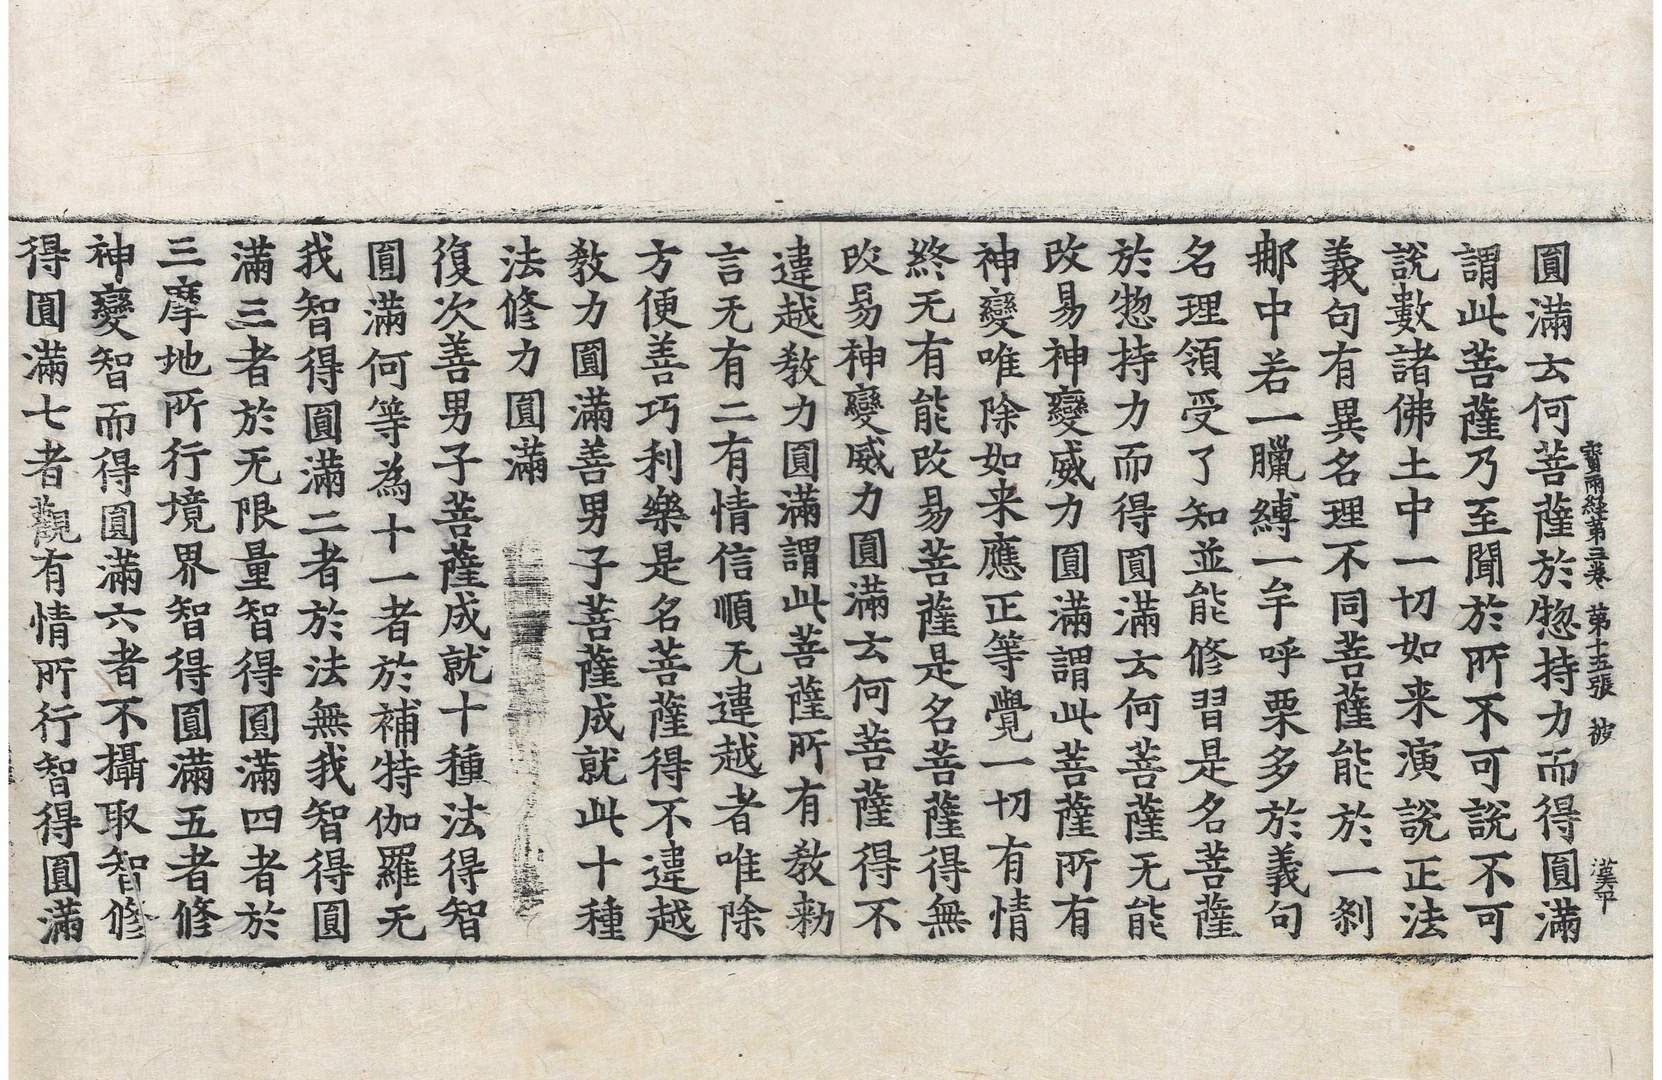 寶雨経第三巻　第十五張　彼　漢平
圓滿云何菩薩於惣持力而得圓滿
謂此菩薩乃至聞於所不可說不可
說數諸佛土中一切如来演說正法
義句有異名理不同菩薩能於一刹
那中若一臘縛一牟呼栗多於義句
名理領受了知並能修習是名菩薩
於惣持力而得圓滿云何菩薩无能
改易神變威力圓滿謂此菩薩所有
神變唯除如来應正等覺一切有情
終无有能改易菩薩是名菩薩得無
改易神變威力圓滿云何菩薩得不
違越教力圓滿謂此菩薩所有教勑
言无有二有情信順无違越者唯除
方便善巧利樂是名菩薩得不違越
教力圓滿善男子菩薩成就此十種
法修力圓滿
復次善男子菩薩成就十種法得智
圓滿何等為十一者於補特伽羅无
我智得圓滿二者於法無我智得圓
滿三者於无限量智得圓滿四者於
三摩地所行境界智得圓滿五者修
神變智而得圓滿六者不攝取智修
得圓滿七者觀有情所行智得圓滿